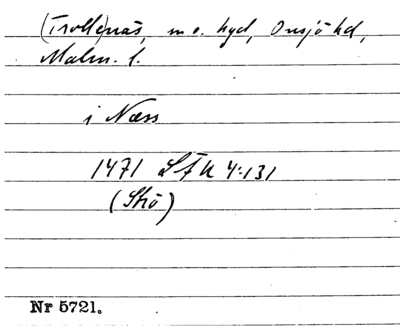 (Trolle)näs, m o. hgd, Onsjö hd,
Malm. l.
i Næss
1471 LÄU 4:131
(Skö)
Nr 5721.